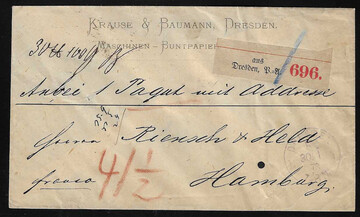 KRAUSE & BAUMANN, DRESDEN.
MASCHINEN-BUNTPAPIER
aus
Dresden, P.-A.
696.
Anbei 1 Paquet mit Addresse
Herren Riensch & Held
franco
4/1/2
Hamburg.